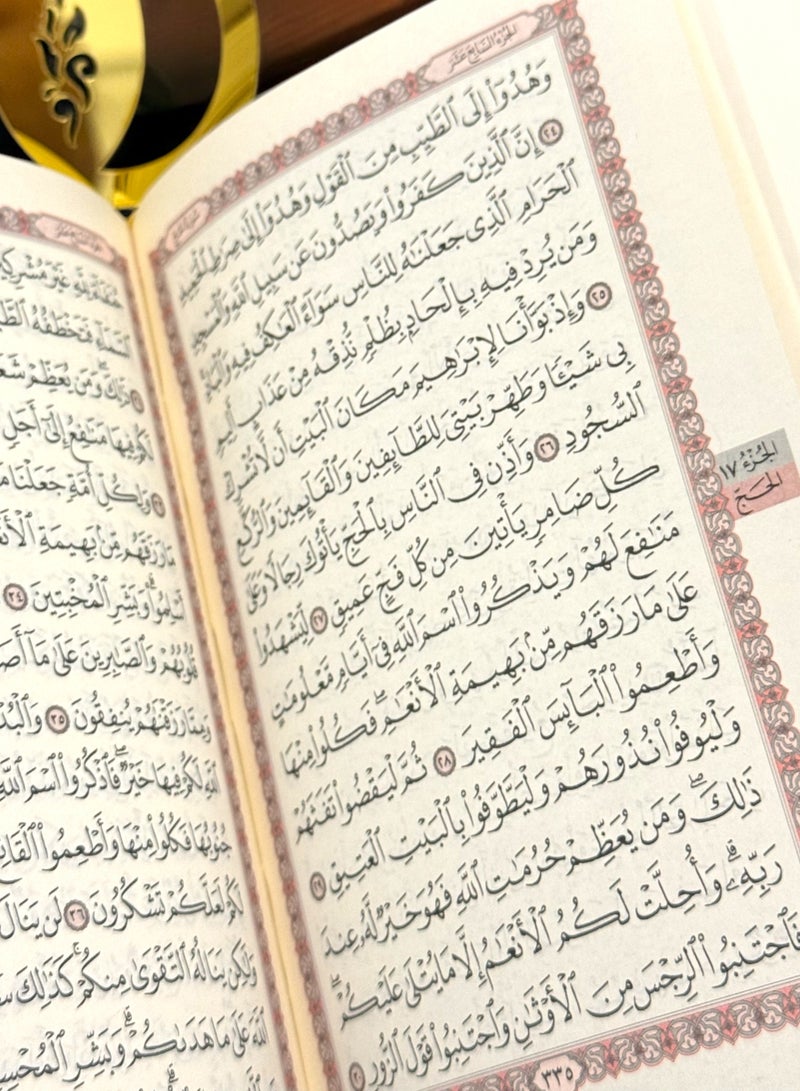 الجزء السابع عشر
وَهُدُوٓا۟ إِلَى ٱلطَّيِّبِ مِنَ ٱلْقَوْلِ وَهُدُوٓا۟ إِلَىٰ صِرَٰطِ ٱلْحَمِيدِ
٢٤ إِنَّ ٱلَّذِينَ كَفَرُوا۟ وَيَصُدُّونَ عَن سَبِيلِ ٱللَّهِ وَٱلْمَسْجِدِ
ٱلْحَرَامِ ٱلَّذِى جَعَلْنَٰهُ لِلنَّاسِ سَوَآءً ٱلْعَٰكِفُ فِيهِ وَٱلْبَادِ
وَمَن يُرِدْ فِيهِ بِإِلْحَادٍۭ بِظُلْمٍ نُّذِقْهُ مِنْ عَذَابٍ أَلِيمٍ
٢٥ وَإِذْ بَوَّأْنَا لِإِبْرَٰهِيمَ مَكَانَ ٱلْبَيْتِ أَن لَّا تُشْرِكْ
بِى شَيْـًٔا وَطَهِّرْ بَيْتِىَ لِلطَّآئِفِينَ وَٱلْقَآئِمِينَ وَٱلرُّكَّعِ
ٱلسُّجُودِ ٢٦ وَأَذِّن فِى ٱلنَّاسِ بِٱلْحَجِّ يَأْتُوكَ رِجَالًا وَعَلَىٰ
كُلِّ ضَامِرٍ يَأْتِينَ مِن كُلِّ فَجٍّ عَمِيقٍ ٢٧ لِّيَشْهَدُوا۟
مَنَٰفِعَ لَهُمْ وَيَذْكُرُوا۟ ٱسْمَ ٱللَّهِ فِىٓ أَيَّامٍ مَّعْلُومَٰتٍ
عَلَىٰ مَا رَزَقَهُم مِّنۢ بَهِيمَةِ ٱلْأَنْعَٰمِ ۖ فَكُلُوا۟ مِنْهَا
وَأَطْعِمُوا۟ ٱلْبَآئِسَ ٱلْفَقِيرَ ٢٨ ثُمَّ لْيَقْضُوا۟ تَفَثَهُمْ
وَلْيُوفُوا۟ نُذُورَهُمْ وَلْيَطَّوَّفُوا۟ بِٱلْبَيْتِ ٱلْعَتِيقِ ٢٩
ذَٰلِكَ ۖ وَمَن يُعَظِّمْ حُرُمَٰتِ ٱللَّهِ فَهُوَ خَيْرٌ لَّهُۥ عِندَ
رَبِّهِۦ ۗ وَأُحِلَّتْ لَكُمُ ٱلْأَنْعَٰمُ إِلَّا مَا يُتْلَىٰ عَلَيْكُمْ ۖ
فَٱجْتَنِبُوا۟ ٱلرِّجْسَ مِنَ ٱلْأَوْثَٰنِ وَٱجْتَنِبُوا۟ قَوْلَ ٱلزُّورِ ٣٠
٣٣٥
الجزء ١٧
الحج
غَيْرَ مُشْرِكِينَ
ٱلسَّمَآءِ فَتَخْطَفُهُ
ذَٰلِكَ وَمَن يُعَظِّمْ
لَكُمْ فِيهَا مَنَٰفِعُ إِلَىٰٓ أَجَلٍ
وَلِكُلِّ أُمَّةٍ جَعَلْنَا
مَا رَزَقَهُم مِّنۢ بَهِيمَةِ
أَسْلِمُوا۟ ۗ وَبَشِّرِ ٱلْمُخْبِتِينَ ٣٤
قُلُوبُهُمْ وَٱلصَّٰبِرِينَ عَلَىٰ مَآ
وَمِمَّا رَزَقْنَٰهُمْ يُنفِقُونَ ٣٥
لَكُمْ فِيهَا خَيْرٌ ۖ فَٱذْكُرُوا۟ ٱسْمَ ٱللَّهِ
جُنُوبُهَا فَكُلُوا۟ مِنْهَا وَأَطْعِمُوا۟
لَكُمْ لَعَلَّكُمْ تَشْكُرُونَ ٣٦ لَن يَنَالَ
وَلَٰكِن يَنَالُهُ ٱلتَّقْوَىٰ مِنكُمْ ۚ كَذَٰلِكَ
ٱللَّهَ عَلَىٰ مَا هَدَىٰكُمْ ۗ وَبَشِّرِ